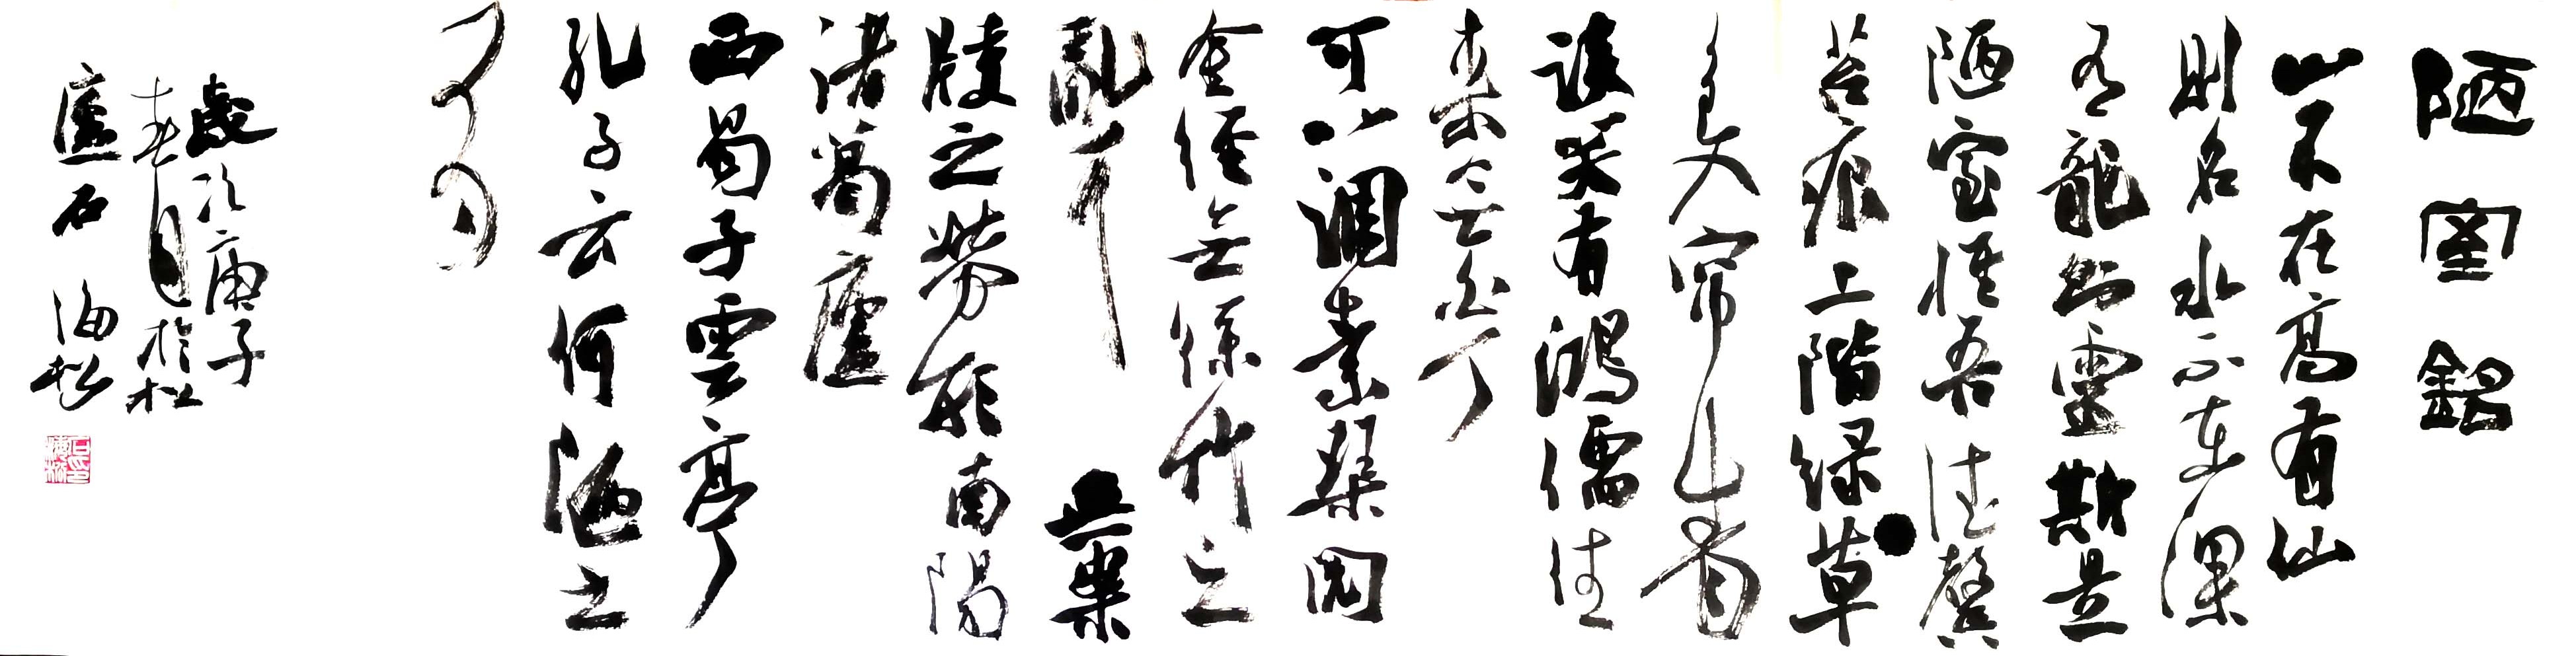 陋室銘
山不在高有仙
則名水不在深
有龍則靈斯是
陋室惟吾德馨
苔痕上階緑草
色入帘青
談笑有鴻儒往
來無白丁
可以調素琴閲
金經無絲竹之
亂耳無案
牘之勞形南陽
諸葛廬
西蜀子雲亭
孔子云何陋之
有
歲次庚子
春月於松
廬石海松